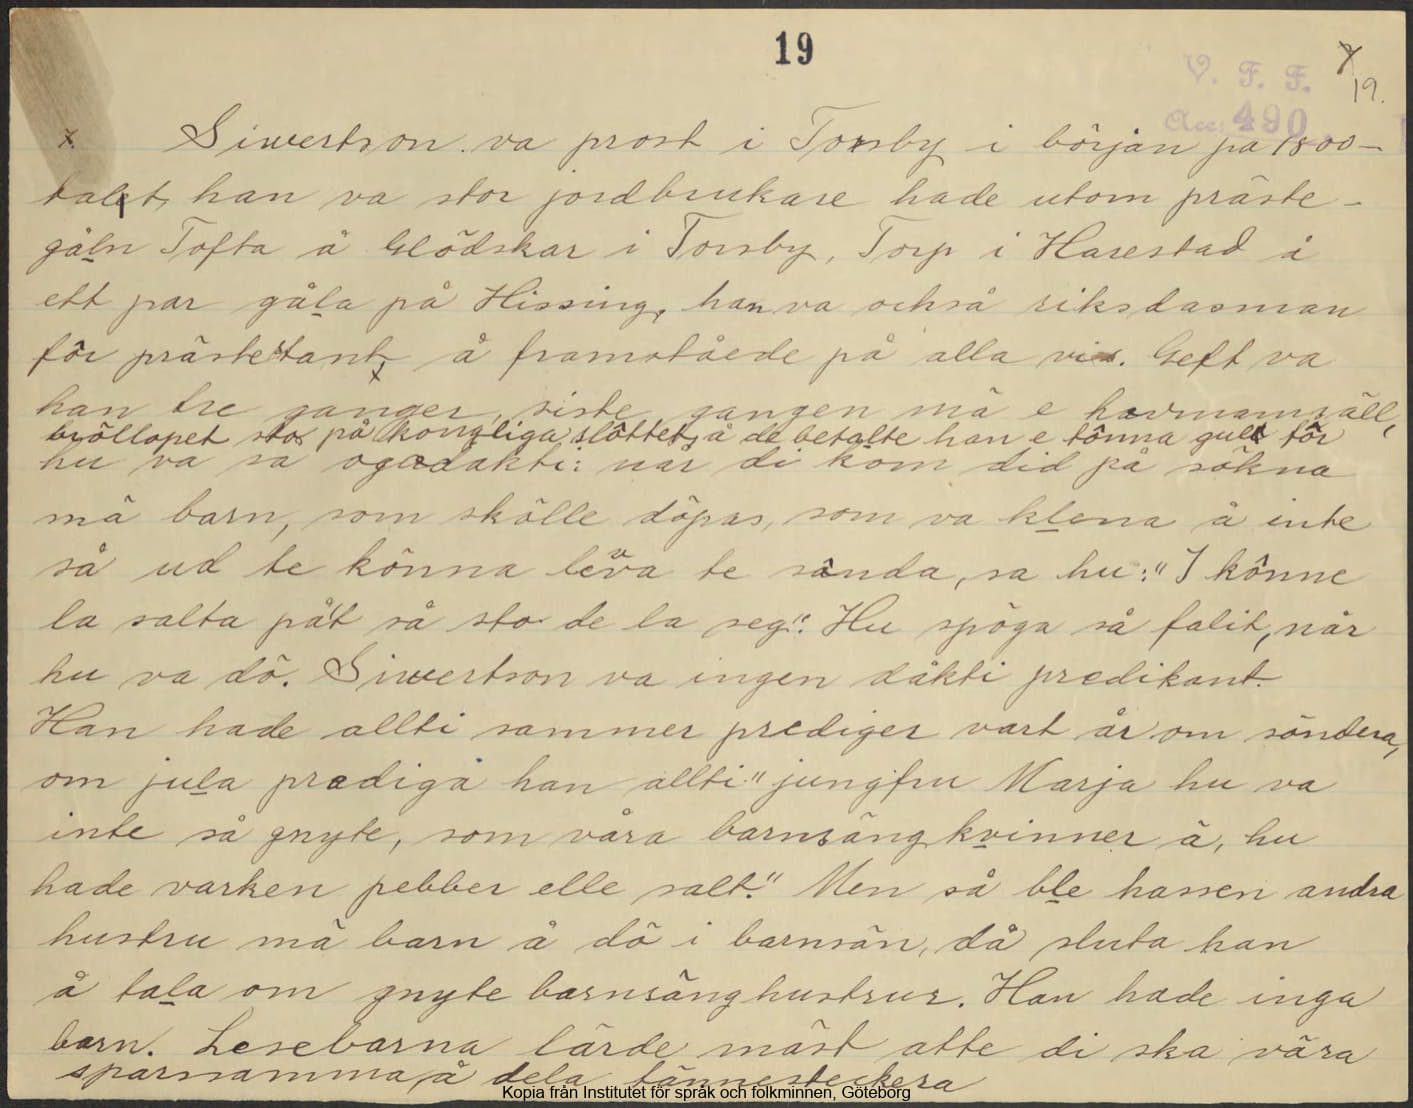 19
7
19.
V. F. F.
Acc: 490
x. Siwertson va prost i Torsby i början på 1800-
talet, han va stor jordbrukare hade utom präste-
gåln Tofta å Glödskar i Torsby, Torp i Harestad å
ett par gåla på Hissing, han va också riksdasman
för prästerstant, å framståede på alla vis. Geft va
han tre ganger, siste gangen mä e hovmamsäll,
bröllopet sto på kongliga slöttet, å de betalte han e tônna gull för
hu va så ogudakti: når di kom did på sökna
mä barn, som skölle döpas, som va klena å inte
så ud te könna leva te sånda, sa hu: "I könne
la salta på't så sto de la seg". Hu spöga så falit, når
hu va dö. Siwertson va ingen dåkti predikant.
Han hade allti sammer prediger vart år om söndera,
om jula prediga han allti "jungfru Marja hu va
inte så gnyte, som våra barnsäng kvinner ä, hu
hade varken pebber elle salt." Men så ble hassen andra
hustru mä barn å dö i barnsän, då sluta han
å tala om gnyte barnsänghustrur. Han hade inga
barn. Lesebarna lärde mäst atte di ska våra
sparsamma, å dela tännesteckera
Kopia från Institutet för språk och folkminnen, Göteborg